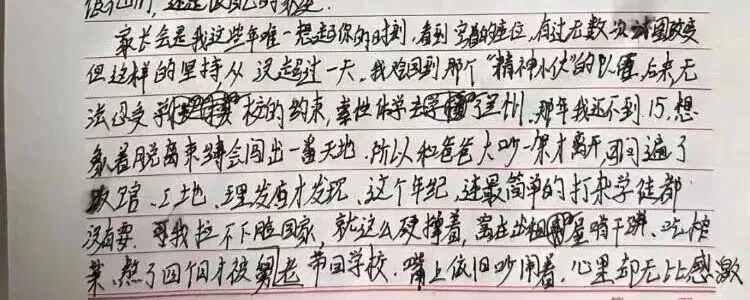 家长会是我这些年唯一想起你的时刻,看到空着的座位,有过无数次试图改变
但这样的坚持从没超过一天。我给回到那个"精神小伙"的队伍,后来,无
法忍受学校的约束,索性休学去了兰州。那年我还不到15,想
象着脱离束缚会闯出一番天地。所以和爸爸大吵一架才离开,可问遍了
饭馆、工地、理发店才发现,这个年纪,连最简单的打杂学徒都
没有要。可我拉不下脸回家,就这么硬撑着,窝在出租屋啃干饼、吃榨
菜,熬了四个才被舅老带回学校。嘴上依旧吵闹着,心里却无比感激